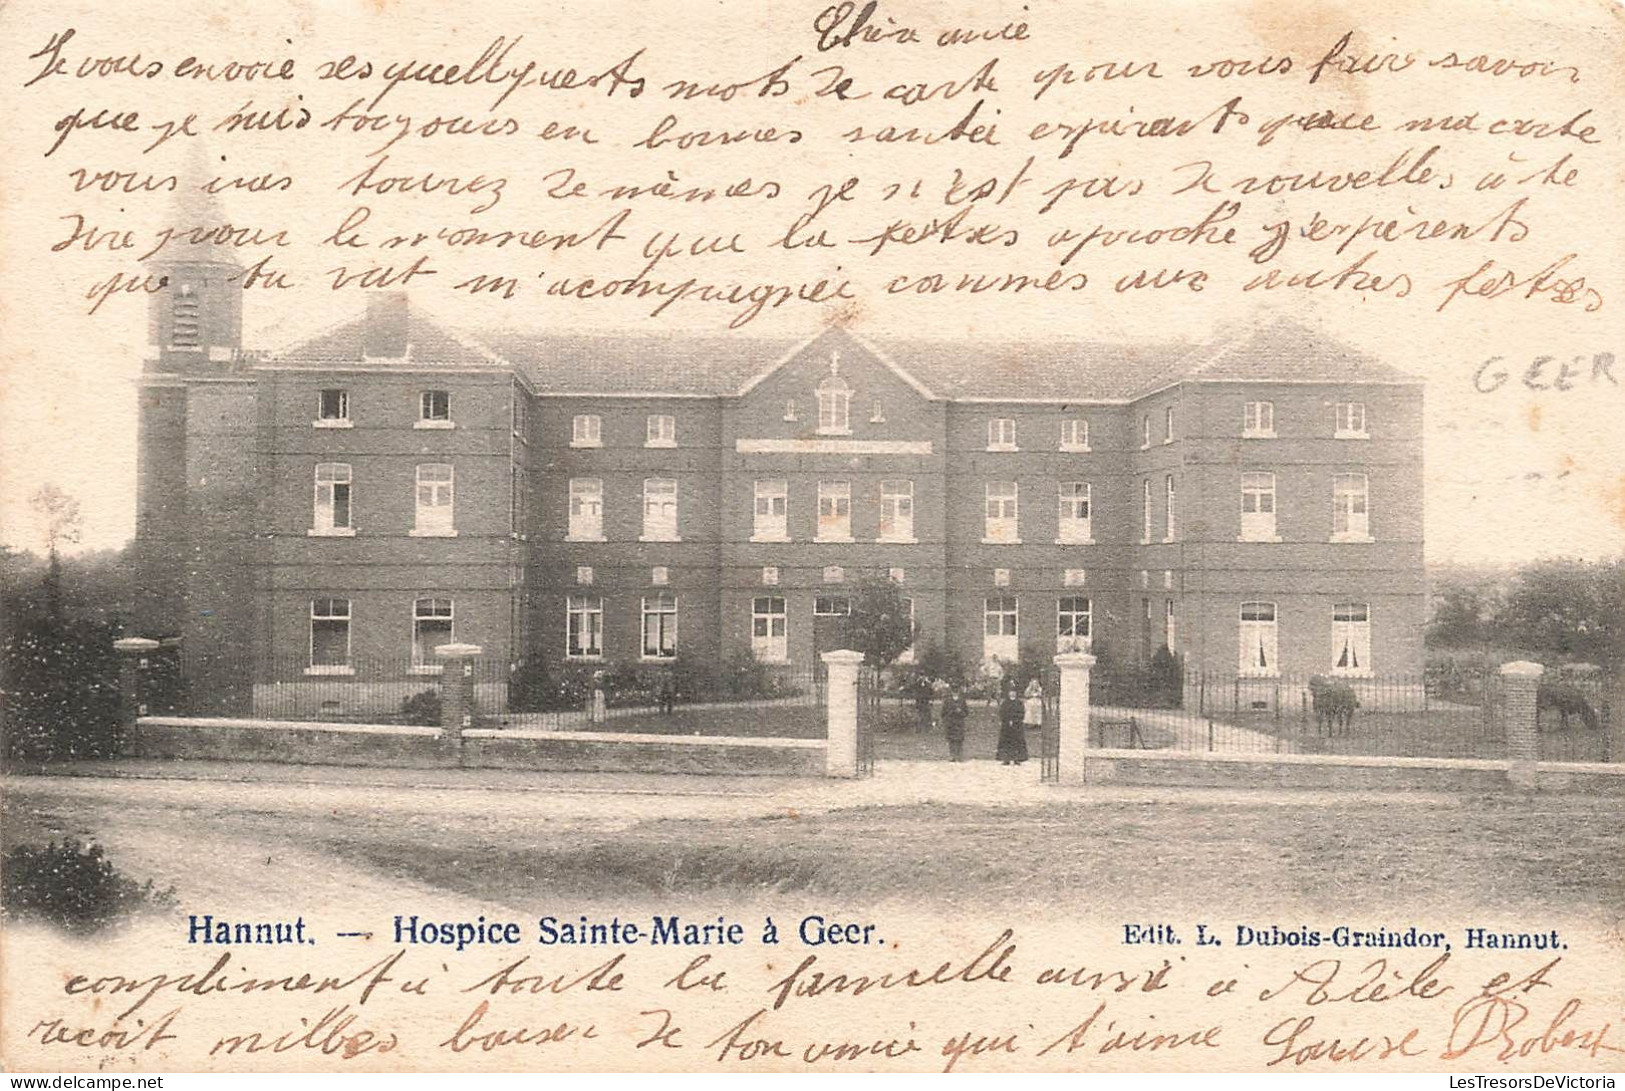 Chère amie
Je vous envoie ses quellquests mots de carte pour vous faire savoir
que je suis toujours en bonnes santéi espérants que ma carte
vous ires tourez de mêmes je n'est pas de nouvelles à te
dire pour le monment que la fettes aproche j'espèrents
que tu vat m'acompagniéi commes aux autres fettes
GEER
Hannut. — Hospice Sainte-Marie à Geer.
Edit. L. Dubois-Graindor, Hannut.
compliment à toute la famielle aussi à Adèle et
recoit milles baiser de ton amie qui t'aime Louise Robert
LesTresorsDeVictoria